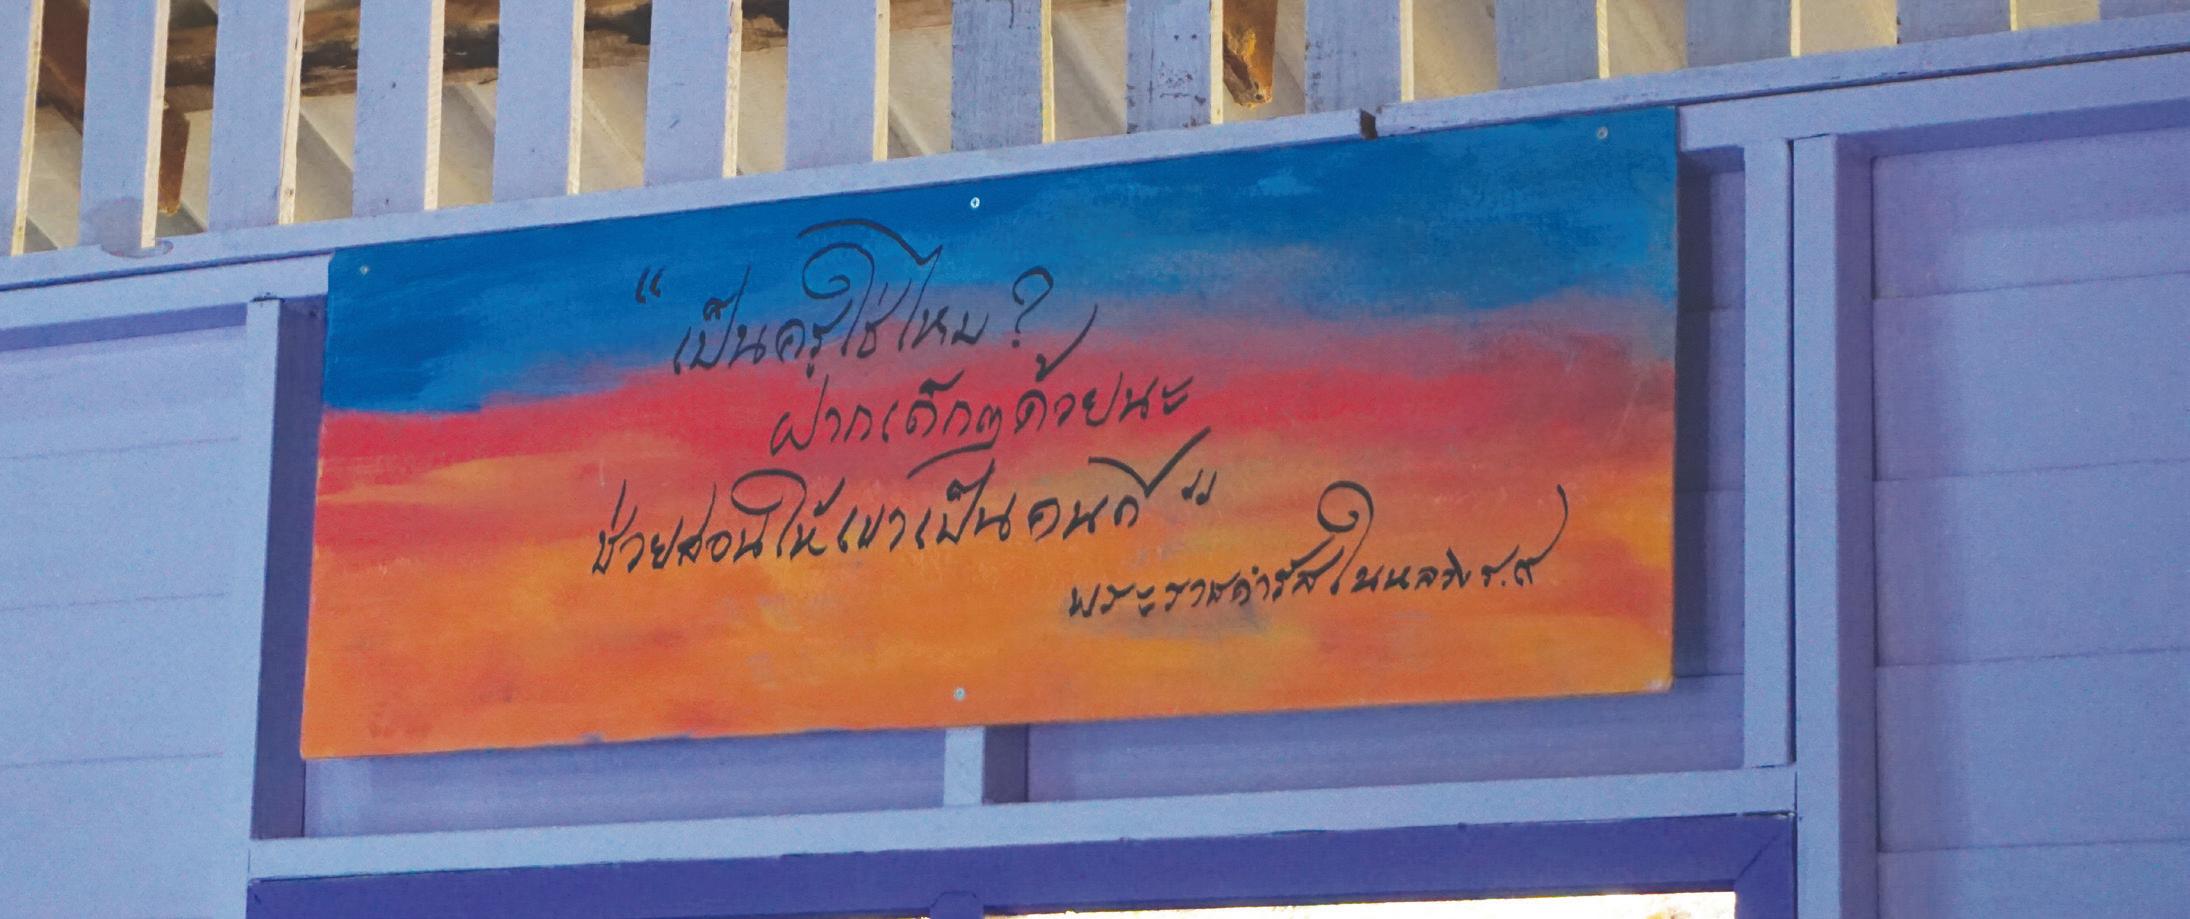 “ เป็นครูใช่ไหม ?
ฝากเด็กๆด้วยนะ
ช่วยสอนให้เขาเป็นคนดี ”
พระราชดำรัสในหลวง ร.๙